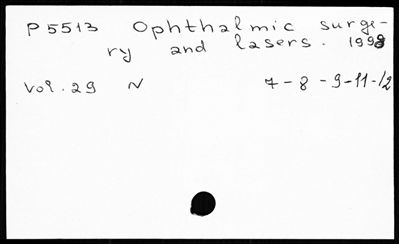 P5513 Ophthalmic surge-
ry and lasers. 1998
Vol. 29 N 7-8-9-11-12